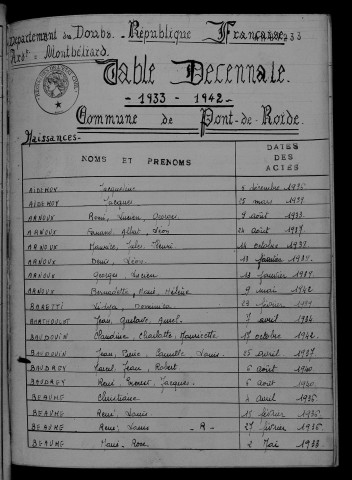 Département du Doubs - République Française.
Arrt - Montbéliard.
Table Decennale.
- 1933 - 1942 -
Commune de Pont-de-Roide.
Naissances.
NOMS ET PRÉNOMS DATES DES ACTES
Jacqueline 6 décembre 1935
Jacques 25 mars
ARNOUX René, Lucien, Georges 9 août 1933
ARNOUX Fernand, Albert, Léon 24 août 1937
ARNOUX Maurice, Jules, Henri 14 octobre
ARNOUX Denis, Léon 13 janvier
ARNOUX Georges, Lucien 13 janvier
ARNOUX Bernadette, Marie, Hélène 9 mai 1942
février
Jean, Gustave, 7 avril 1934
BAUDOUIN Claudine, Charlotte, Mauricette 17 octobre 1942
BAUDOUIN Jean, Pierre, Camille, Louis 25 avril 1937
BAUDREY Jean, Robert 6 août 1940
BAUDREY René, Ernest, Jacques 6 août 1940
BEAUME Christiane 4 avril 1936
BEAUME René, Louis 15 février 1936
BEAUME René, Louis - R - 27 février 1936
BEAUME Marie, Rose 2 Mai 1933